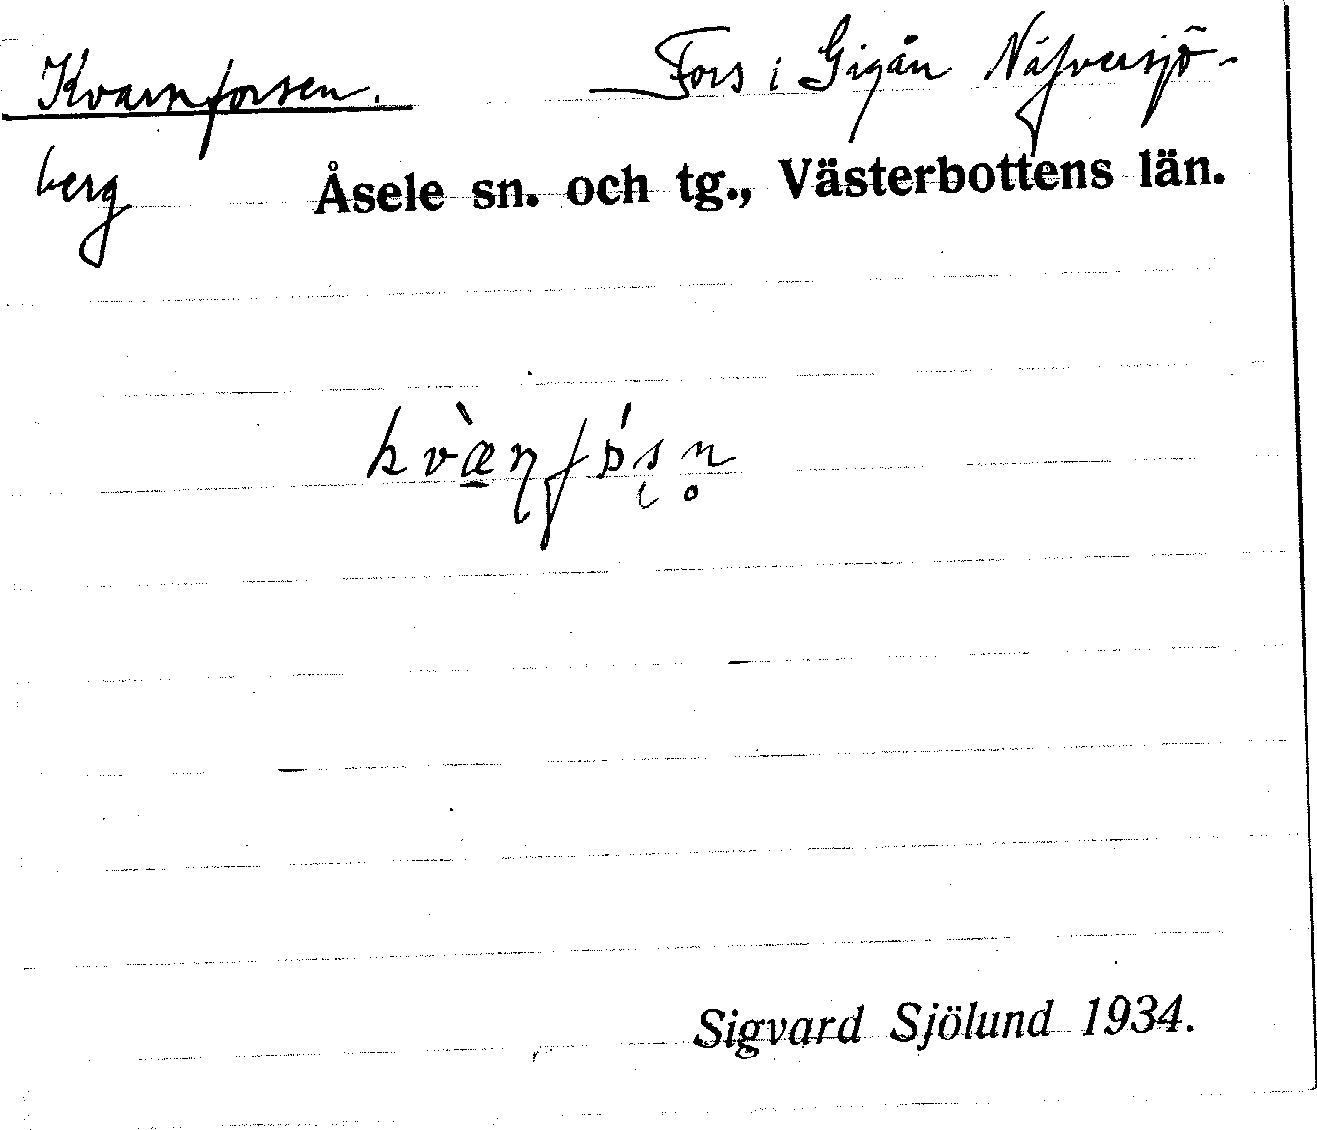 Kvarnforsen. Fors i Gigån Näfversjö-
berg Åsele sn. och tg., Västerbottens län.
kv̀æ̱ɳfɒ́ʂn̥
Sigvard Sjölund 1934.